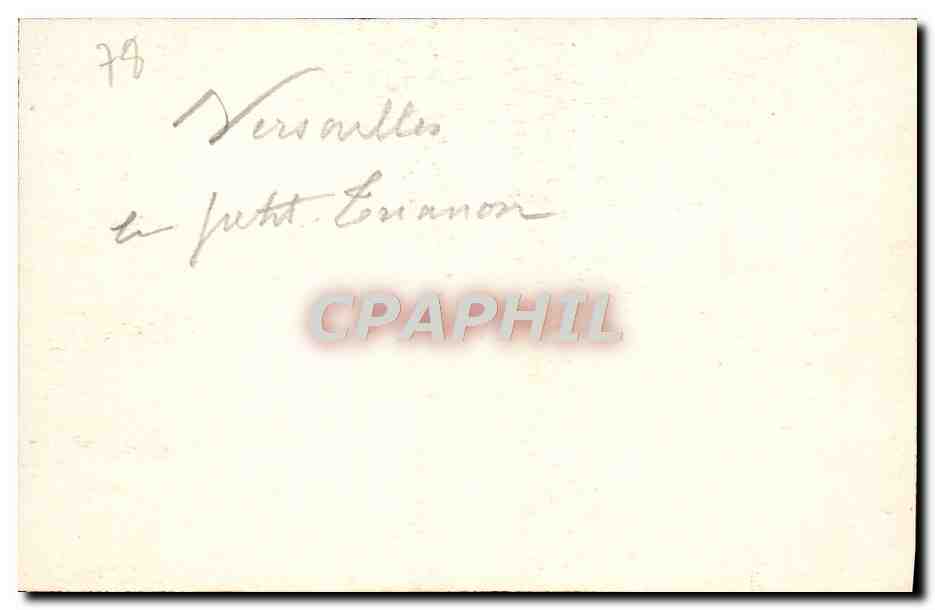 78
Versailles
le petit Trianon
CPAPHIL